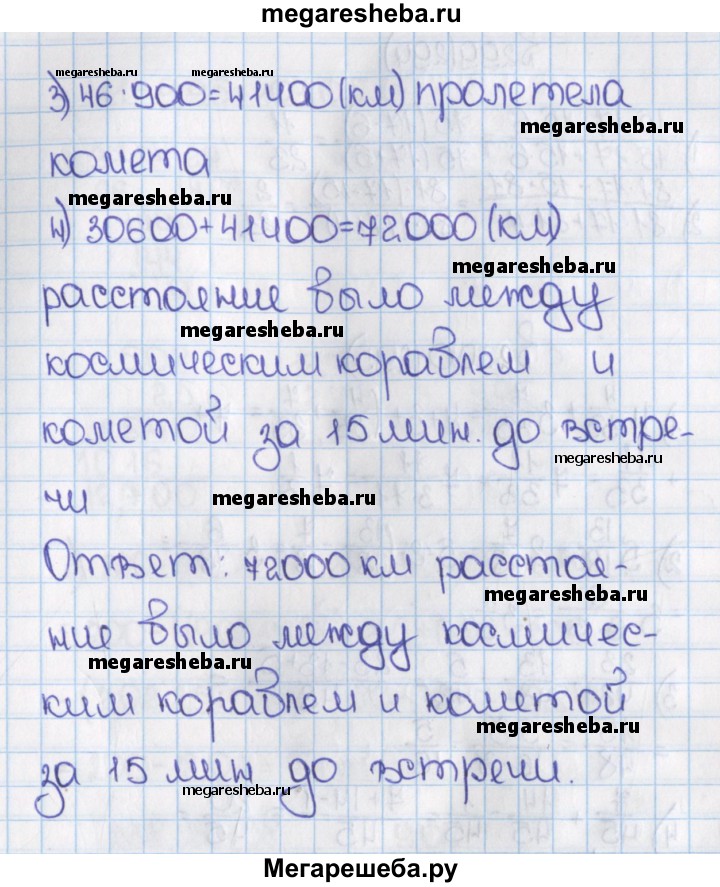 megaresheba.ru
megaresheba.ru megaresheba.ru
3) 46·900=41400(км) пролетела
megaresheba.ru
комета
megaresheba.ru
4) 30600+41400=72000(км)
megaresheba.ru
расстояние было между
megaresheba.ru
космическим кораблем и
кометой за 15 мин. до встре-
megaresheba.ru
чи megaresheba.ru
Ответ: 72000 км расстоя-
megaresheba.ru
ние было между космичес-
megaresheba.ru
ким кораблем и кометой
megaresheba.ru
за 15 мин до встречи.
megaresheba.ru
Мегарешеба.ру